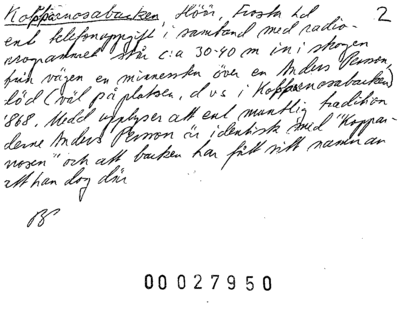 Kopparnosabacken, Höör, Frosta hd
2
enl telefonuppgift i samband med radio-
programmet står c:a 30-40 m in i skogen
från vägen en minnessten över en Anders Persson,
död (väl på platsen, d v s i Kopparnosabacken)
1868. Medd upplyser att enl muntlig tradition
denne Anders Persson är identisk med "Koppar-
nosen" och att backen har fått sitt namn av
att han dog där
00027950